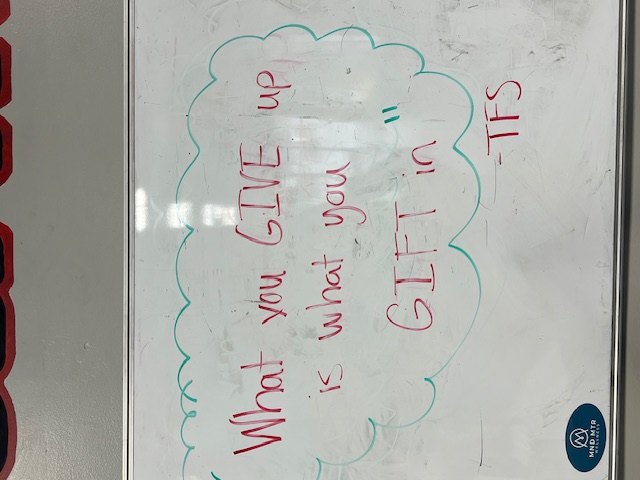 What you GIVE up
is what you
GIFT in "
-TFS
MND MTR
WELLNESS